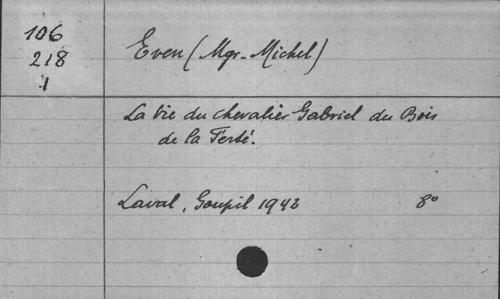 106
218
1
Even (Mgr-Michel)
La vie du chevalier Gabriel du Bois
de la Ferté.
Laval, Goupil 1942 8°